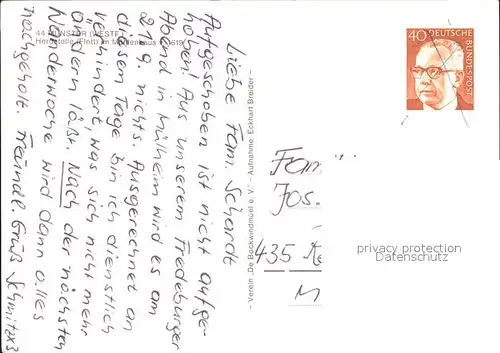 44 MÜNSTER (WESTF.)
Herdstelle (Flett) im Mühlenhaus v. 1619
Liebe Fam. Schardt
Aufgeschoben ist nicht aufge-
hoben! Aus unserem Fredeburger
Abend in Mülheim wird es am
21.9. nichts. Ausgerechnet an
diesem Tage bin ich dienstlich
verhindert, was sich nicht mehr
ändern läßt. Nach der nächsten
Wanderwoche wird dann alles
nachgeholt. Freundl. Gruß Schmitzx3
- Verein „De Bockwindmüel e. V." - Aufnahme Eckhart Breider -
40
DEUTSCHE
BUNDESPOST
Fam
Jos.
435 Re
M
privacy protection
Datenschutz